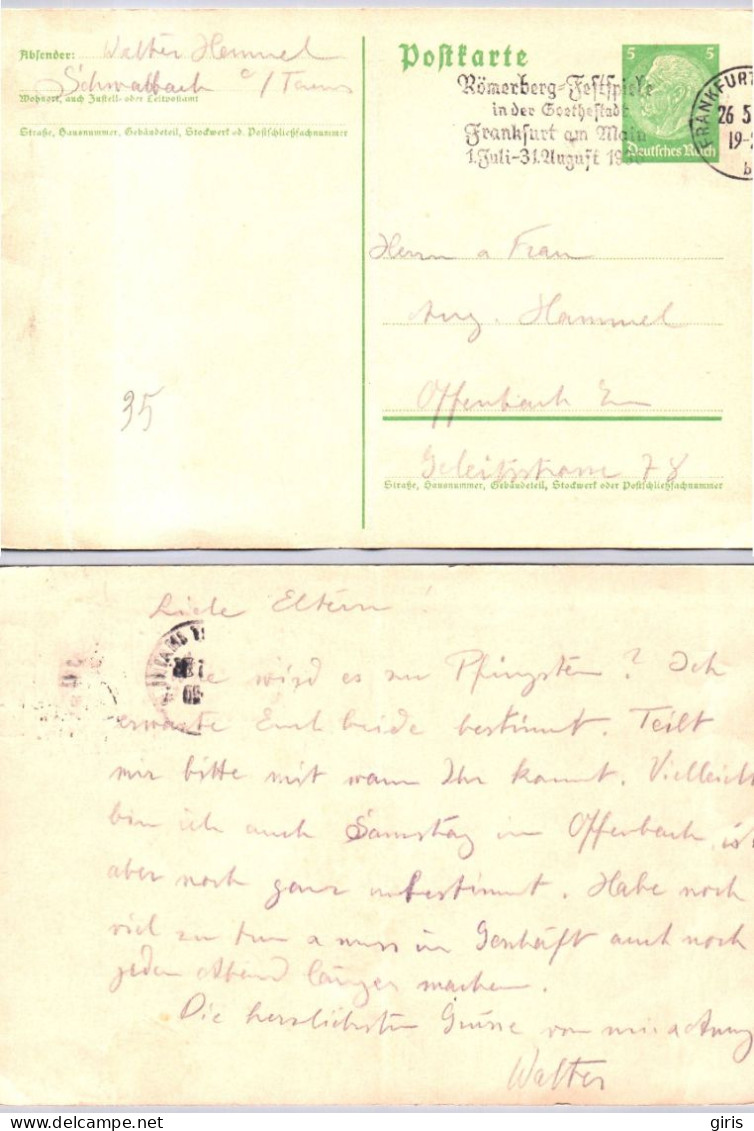 Absender: Walter Hemmel
Schwalbach /Taunus
Wohnort, auch Zustell- oder Leitpostamt
Straße, Hausnummer, Gebäudeteil, Stockwerk od. Postschließfachnummer
Postkarte
5 5
Deutsches Reich
Römerberg-Festspiele
in der Goethestadt
Frankfurt am Main
1. Juli-31. August 19
FRANKFURT
26 5
19-
b
Herrn u Frau
Aug. Hammel
Offenbach
Geleitsstrasse 78
Straße, Hausnummer, Gebäudeteil, Stockwerk oder Postschließfachnummer
35
Liebe Eltern!
wird es zu Pfingsten? Ich
erwarte Euch beide bestimmt. Teilt
mir bitte mit wann Ihr kommt. Vielleicht
bin ich auch Samstag in Offenbach, ist
aber noch ganz unbestimmt. Habe noch
viel zu tun u muss im Geschäft auch noch
jeden Abend länger machen.
Die herzlichsten Grüsse von
Walter
delcampe.net
giris